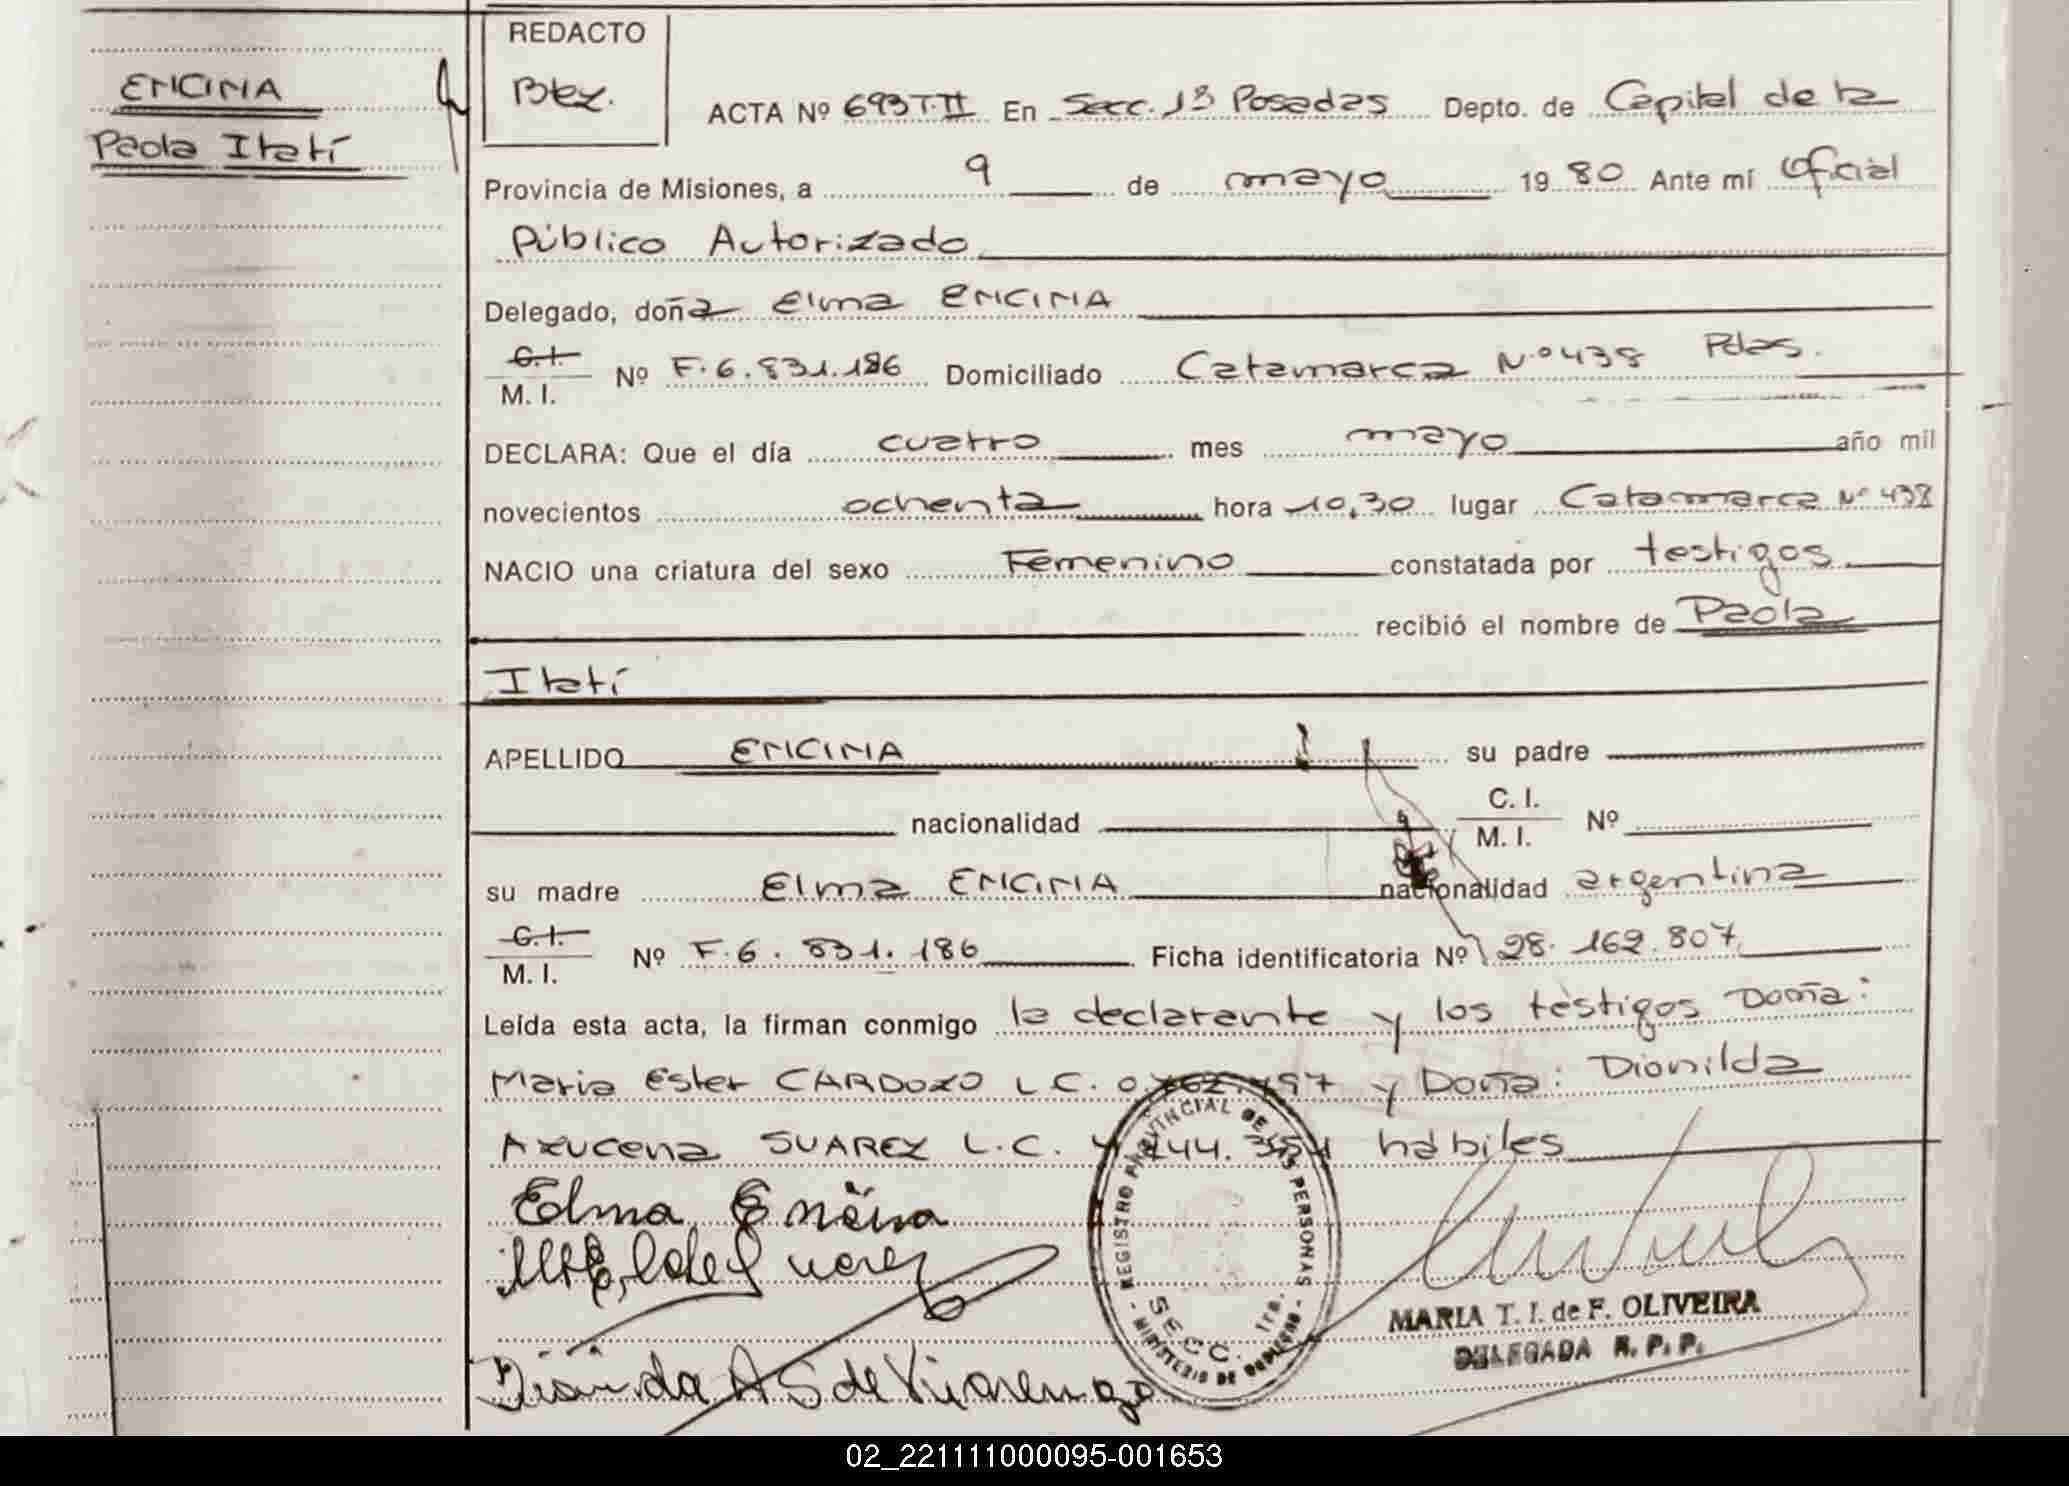 REDACTO
Btez.
ENCINA
Paola Itatí
ACTA Nº 693 T. II En Secc. 1ª Posadas Depto. de Capital de la
Provincia de Misiones, a 9 de mayo 1980 Ante mí Oficial
Público Autorizado
Delegado, doña Elma ENCINA
C. I.
M. I. Nº F. 6. 831. 186 Domiciliado Catamarca Nº 438 Pdas.
DECLARA: Que el día cuatro mes mayo año mil
novecientos ochenta hora 10,30 lugar Catamarca Nº 438
NACIO una criatura del sexo Femenino constatada por testigos
recibió el nombre de Paola
Itatí
APELLIDO ENCINA su padre
nacionalidad C. I. Nº
M. I.
su madre Elma ENCINA nacionalidad argentina
C. I.
M. I. Nº F. 6. 831. 186 Ficha identificatoria Nº 28. 162. 807
Leída esta acta, la firman conmigo la declarante y los testigos Doña:
Maria Ester CARDOZO L C. y Doña: Dionilda
Azucena SUAREZ L. C. hábiles
Elma Encina
REGISTRO PROVINCIAL DE LAS PERSONAS
SECC. 1ra.
MINISTERIO DE GOBIERNO
MARIA T. I. de F. OLIVEIRA
DELEGADA R. P. P.
02_221111000095-001653